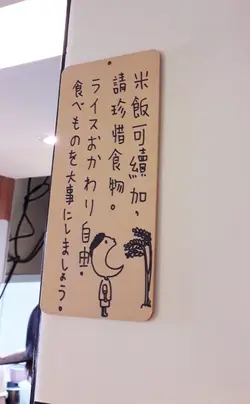 米飯可續加,
請珍惜食物。
ライスおかわり自由.
食べものを大事にしましょう。